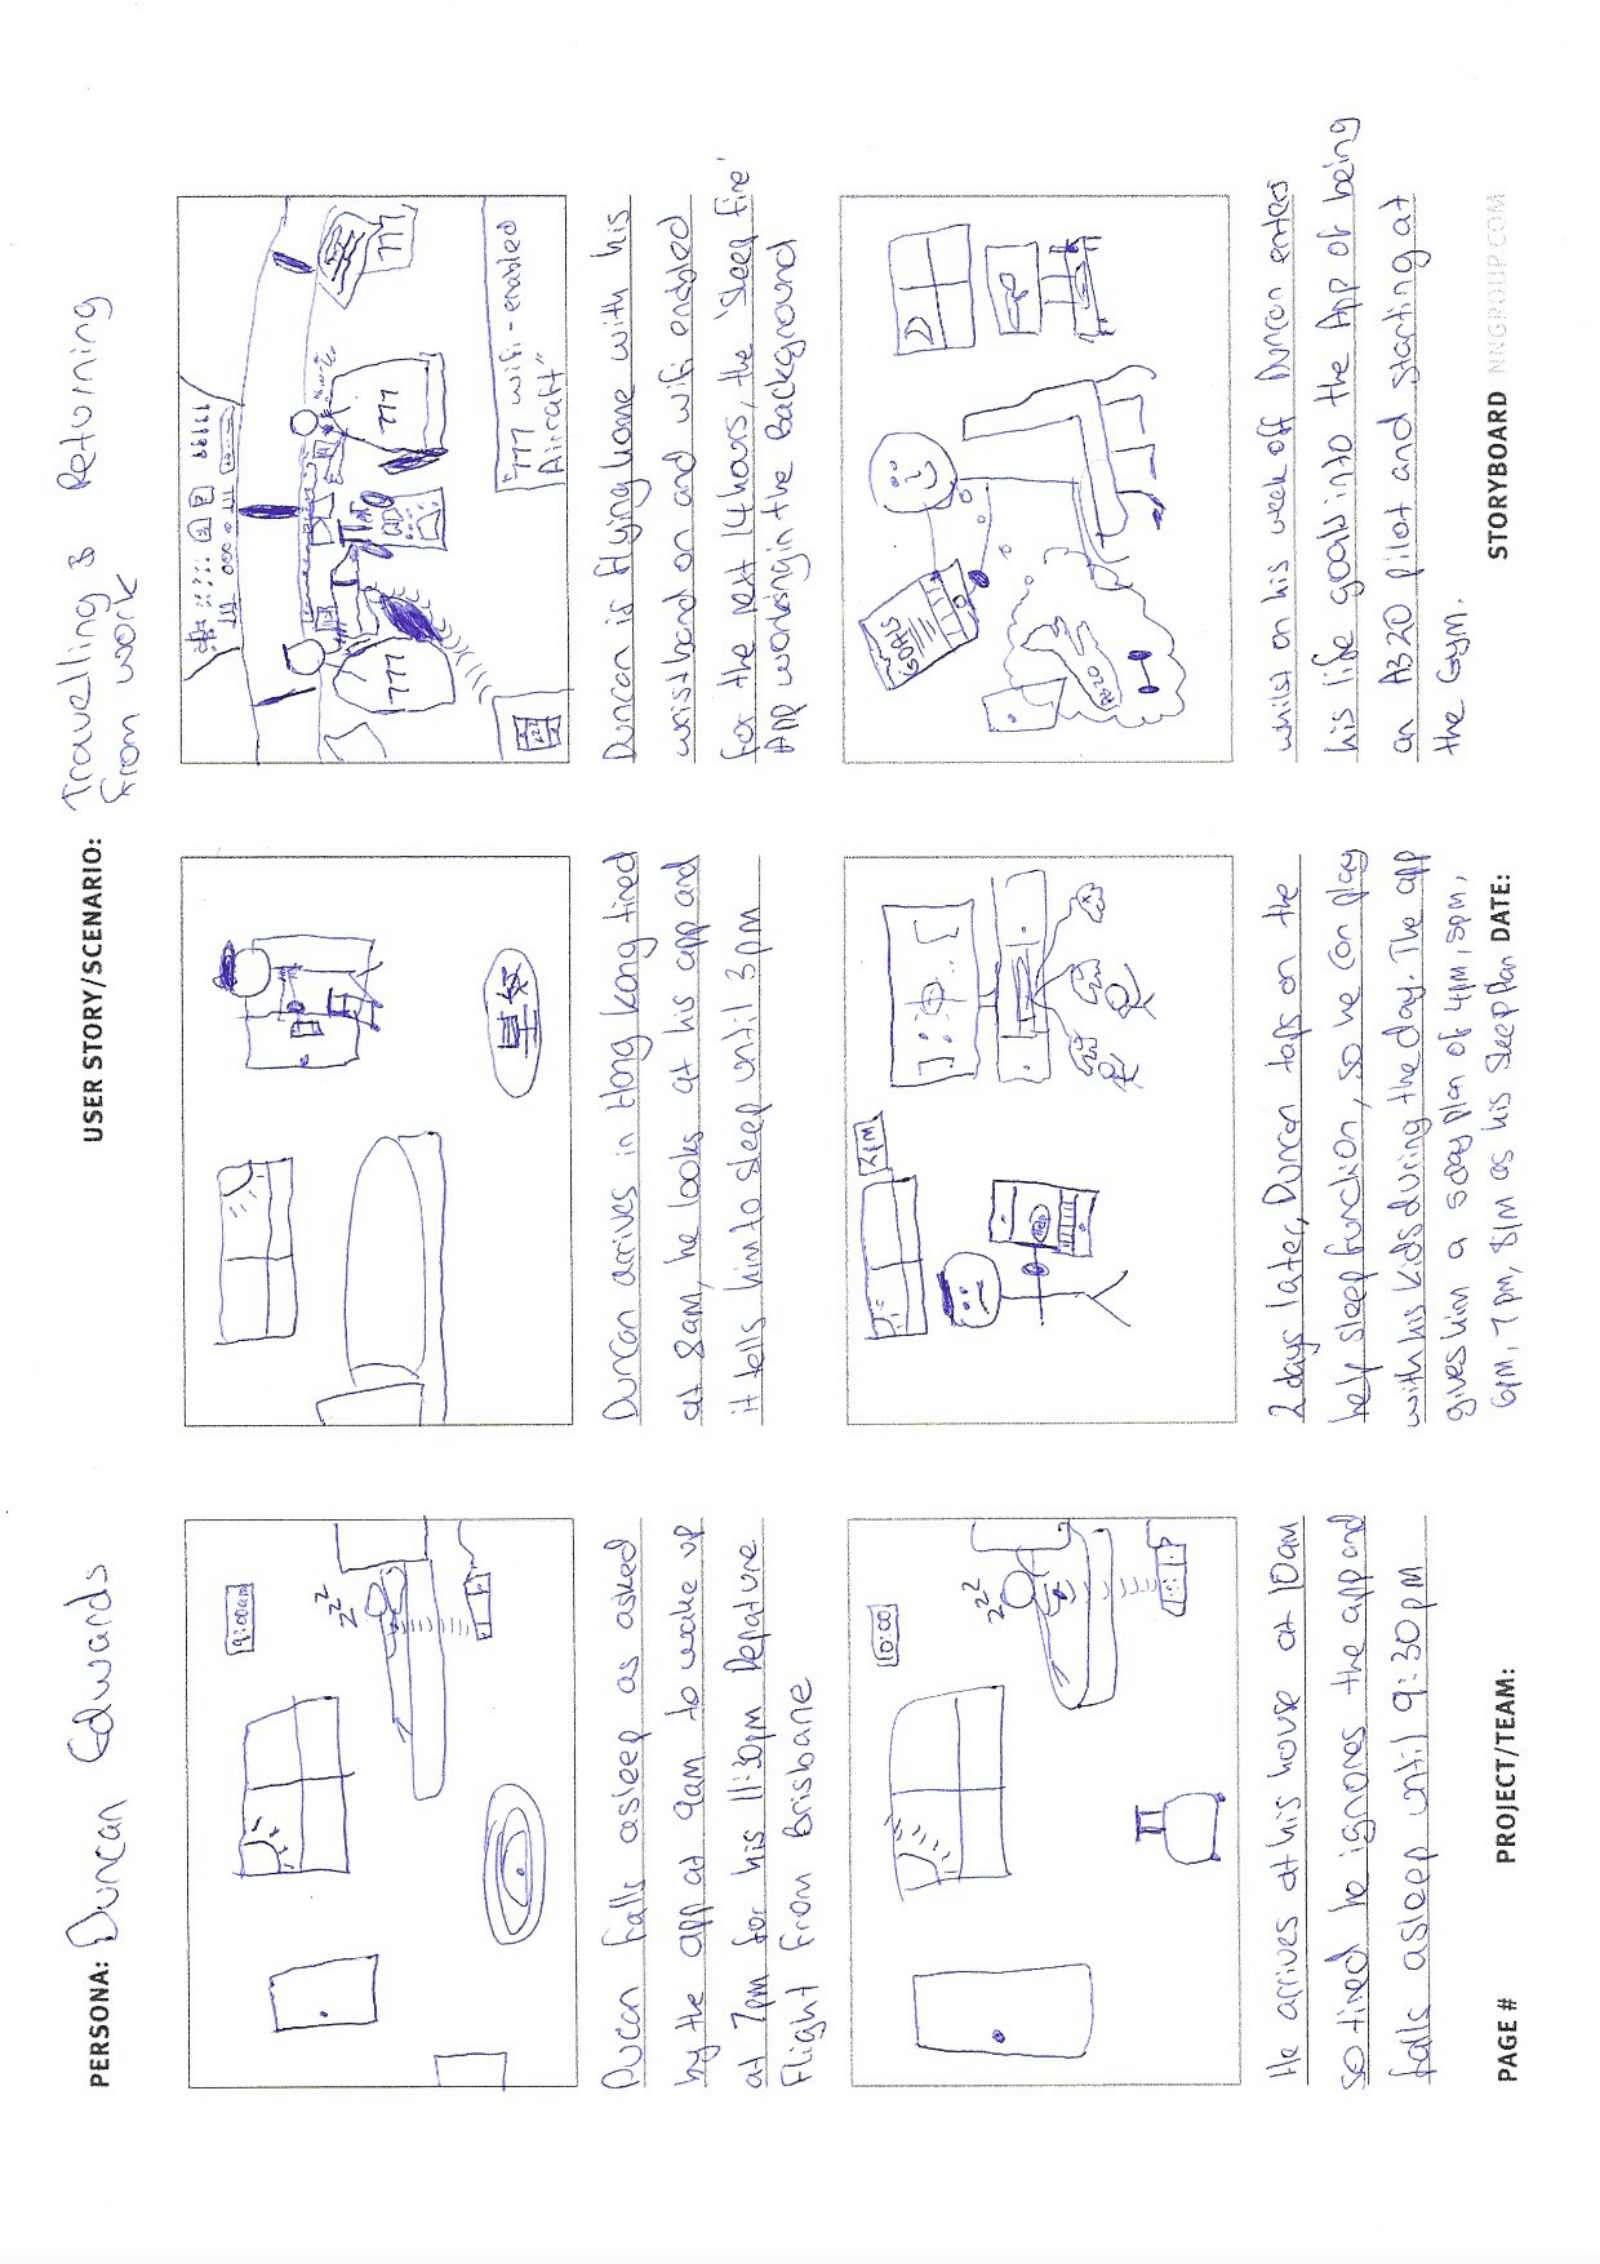 PERSONA: Duncan Edwards
USER STORY/SCENARIO: Travelling & Returning
from work
9:00am
zzz
Duncan falls asleep as asked
by the app at 9am to wake up
at 7pm for his 11:30pm Depature
Flight from Brisbane
Duncan arrives in Hong Kong tired
at 8am, he looks at his app and
it tells him to sleep until 3pm
777
777
777
"777 wifi-enabled
Aircraft"
Duncan is flying home with his
wristband on and wifi enabled
for the next 14 hours, the 'sleep fire'
App working in the background
10:00
zzz
He arrives at his house at 10am
so tired he ignores the app and
falls asleep until 9:30pm
Help
2 days later, Duncan taps on the
help sleep function, so we can play
with his kids during the day. The app
gives him a 5 day plan of 4pm, 5pm,
6pm, 7pm, 8pm as his sleep plan
GOALS
A320
whilst on his week off Duncan enters
his life goals into the App of being
an A320 pilot and starting at
the Gym.
PAGE #
PROJECT/TEAM:
DATE:
STORYBOARD NNGROUP.COM